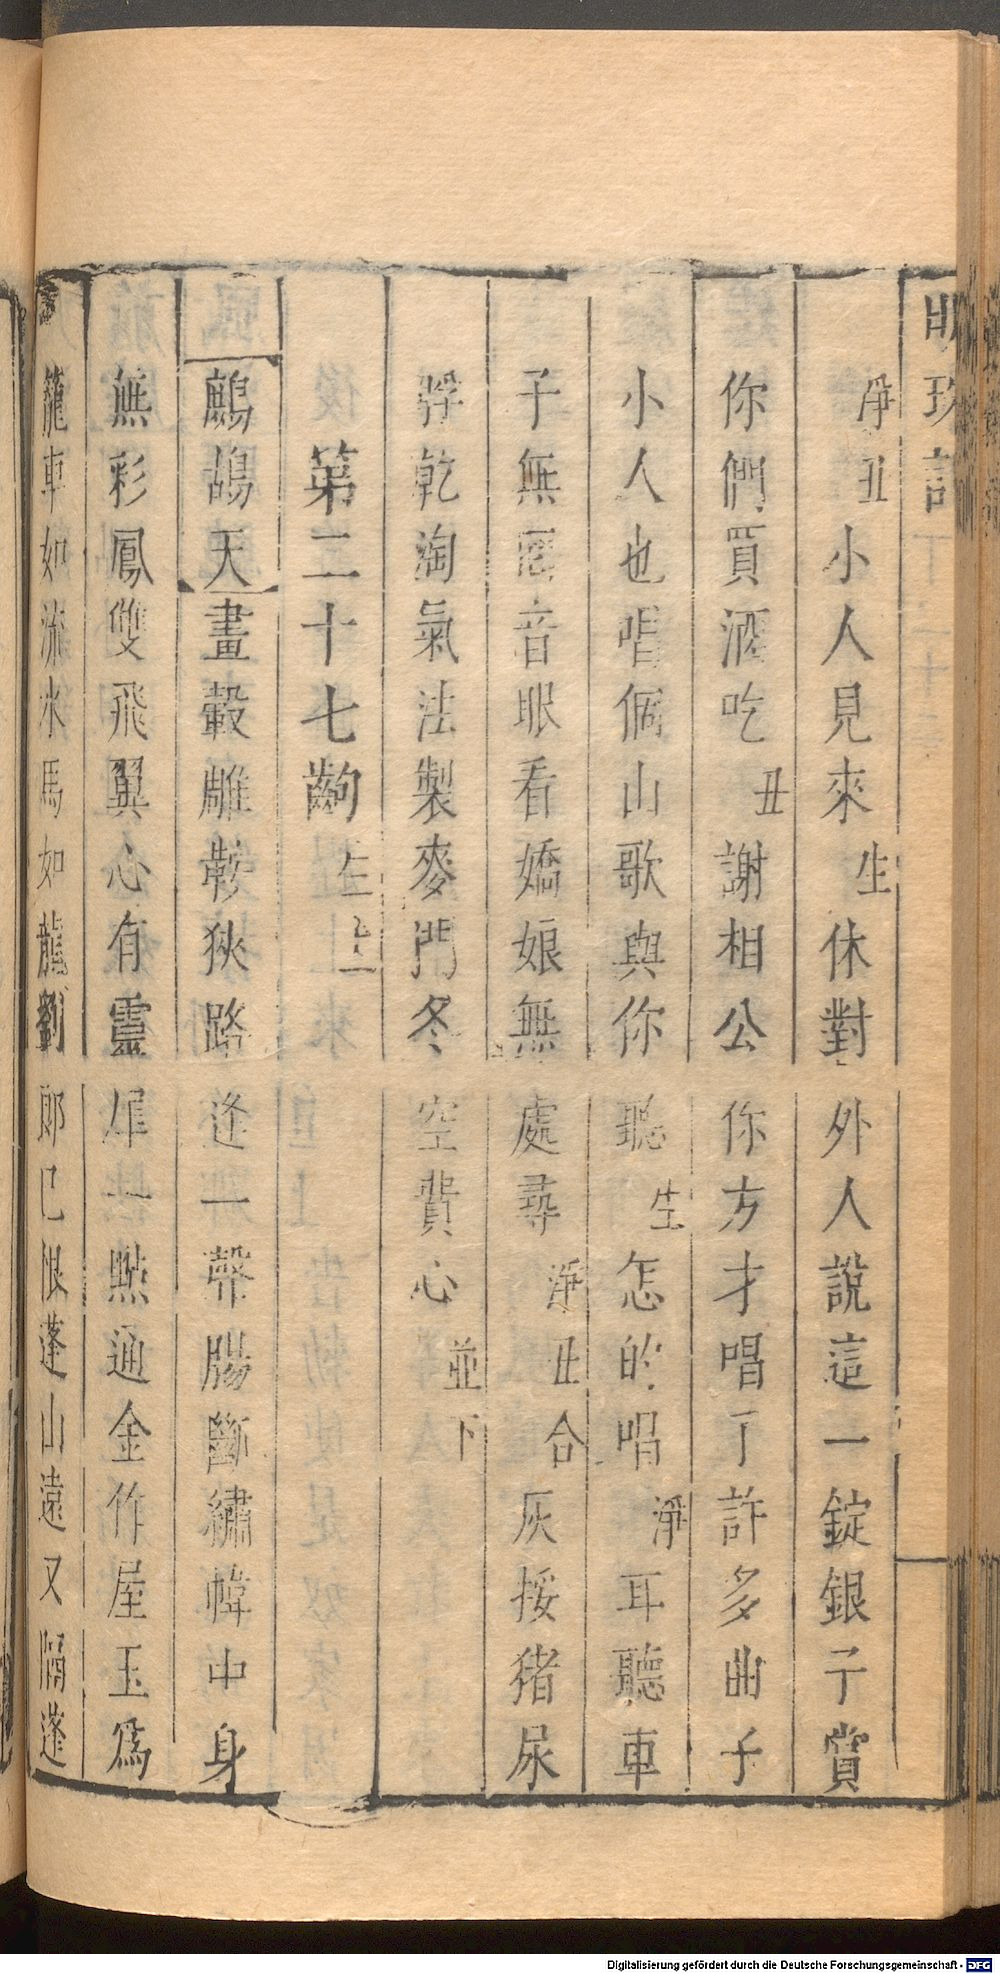 明珠記
淨丑小人見來生休對外人說這一錠銀子賞
你們買酒吃丑謝相公你方才唱了許多曲子
小人也唱個山歌與你聽生怎的唱淨耳聽車
子無因音眼看嬌娘無處尋淨丑合灰挼猪尿
脬乾淘氣法製麥門冬空費心並下
第二十七齣生上
鷓鴣天畫轂雕鞍狹路逢一聲腸斷繡幃中身
無彩鳳雙飛翼心有靈犀一㸃通金作屋玉爲
籠車如流水馬如龍劉郎已恨蓬山遠又隔蓬
Digitalisierung gefördert durch die Deutsche Forschungsgemeinschaft - DFG